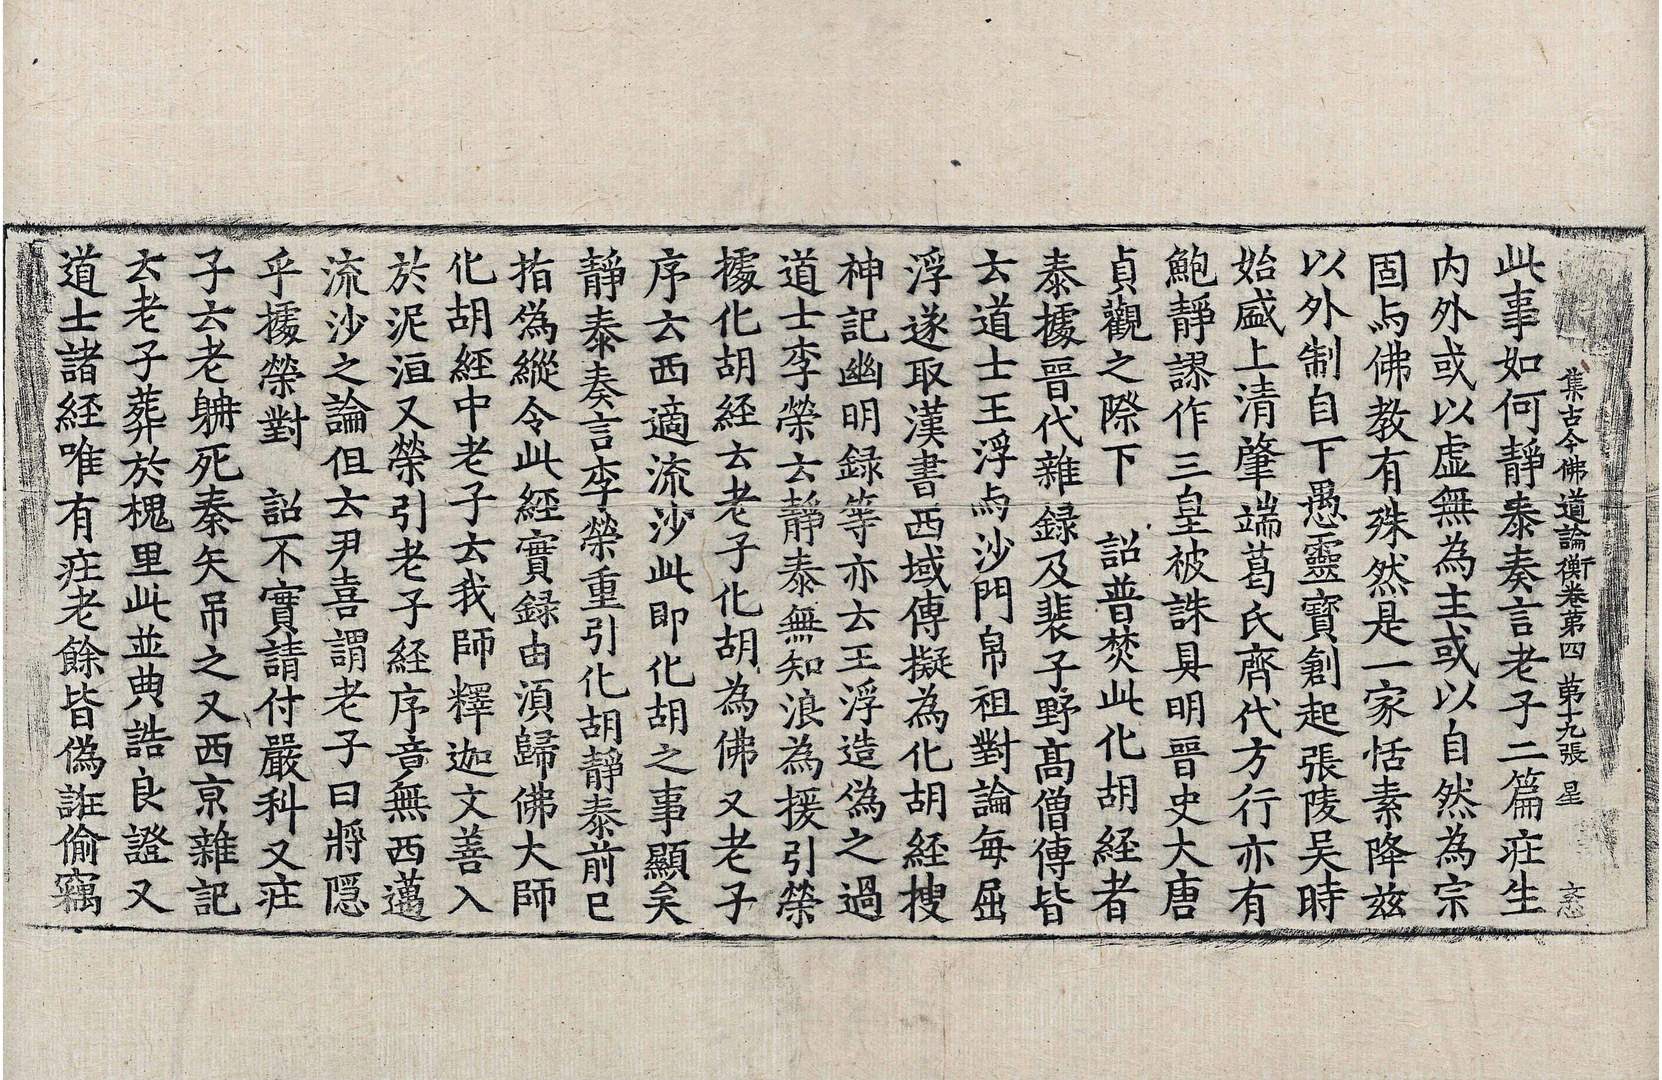 集古今佛道論衡卷第四 第十九張 星
此事如何靜泰奏言老子二篇疘生
内外或以虚無為主或以自然為宗
固与佛教有殊然是一家恬素降兹
以外制自下愚靈寳創起張陵吴時
始盛上清肇端葛氏齊代方行亦有
鮑靜謬作三皇被誅具明晉史大唐
貞觀之際下 詔普焚此化胡經者
泰據晉代雜録及裴子野髙僧傳皆
云道士王浮与沙門帛祖對論每屈
浮遂取漢書西域傳擬為化胡經搜
神記幽明録等亦云王浮造偽之過
道士李榮云靜泰無知浪為援引榮
據化胡經云老子化胡為佛又老子
序云西適流沙此即化胡之事顯矣
靜泰奏言李榮重引化胡靜泰前已
指偽縱令此經實録由湏歸佛大師
化胡經中老子云我師釋迦文善入
於泥洹又榮引老子經序音無西邁
流沙之論但云尹喜謂老子曰將隠
乎據榮對 詔不實請付嚴科又疘
子云老𣆶死秦矢吊之又西亰雜記
云老子葬於槐里此並典誥良證又
道士諸經唯有疘老餘皆偽誑偷竊